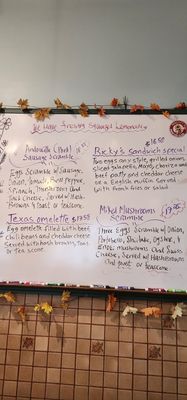 We Have Freshly Squeezed Lemonade
Andouille (Pork)
Sausage Scramble
Eggs Scramble w/ Sausage,
Onion, and Bell Pepper,
Spinach, Mushrooms and
Jack Cheese, Served w/ Hash-
Browns & toast or teascone
Texas omelette $17.50
Egg omelette filled with beef,
chili beans and cheddar cheese
Served with hash browns, Toast
or Tea scone
$16.50
Ricky's sandwich special
Two eggs any style, grilled onions,
sliced jalapeño, Mayo, chorizo and
beef patty and cheddar cheese
on a English muffin. Served
with french fries or salad
Mikes Mushrooms
Scramble $17.95
Three Eggs Scramble w/ Onion,
Portobello, Shiitake, Oyster, &
Enoki mushrooms and Swiss
Cheese, Served w/ Hashbrowns
and toast or teascone